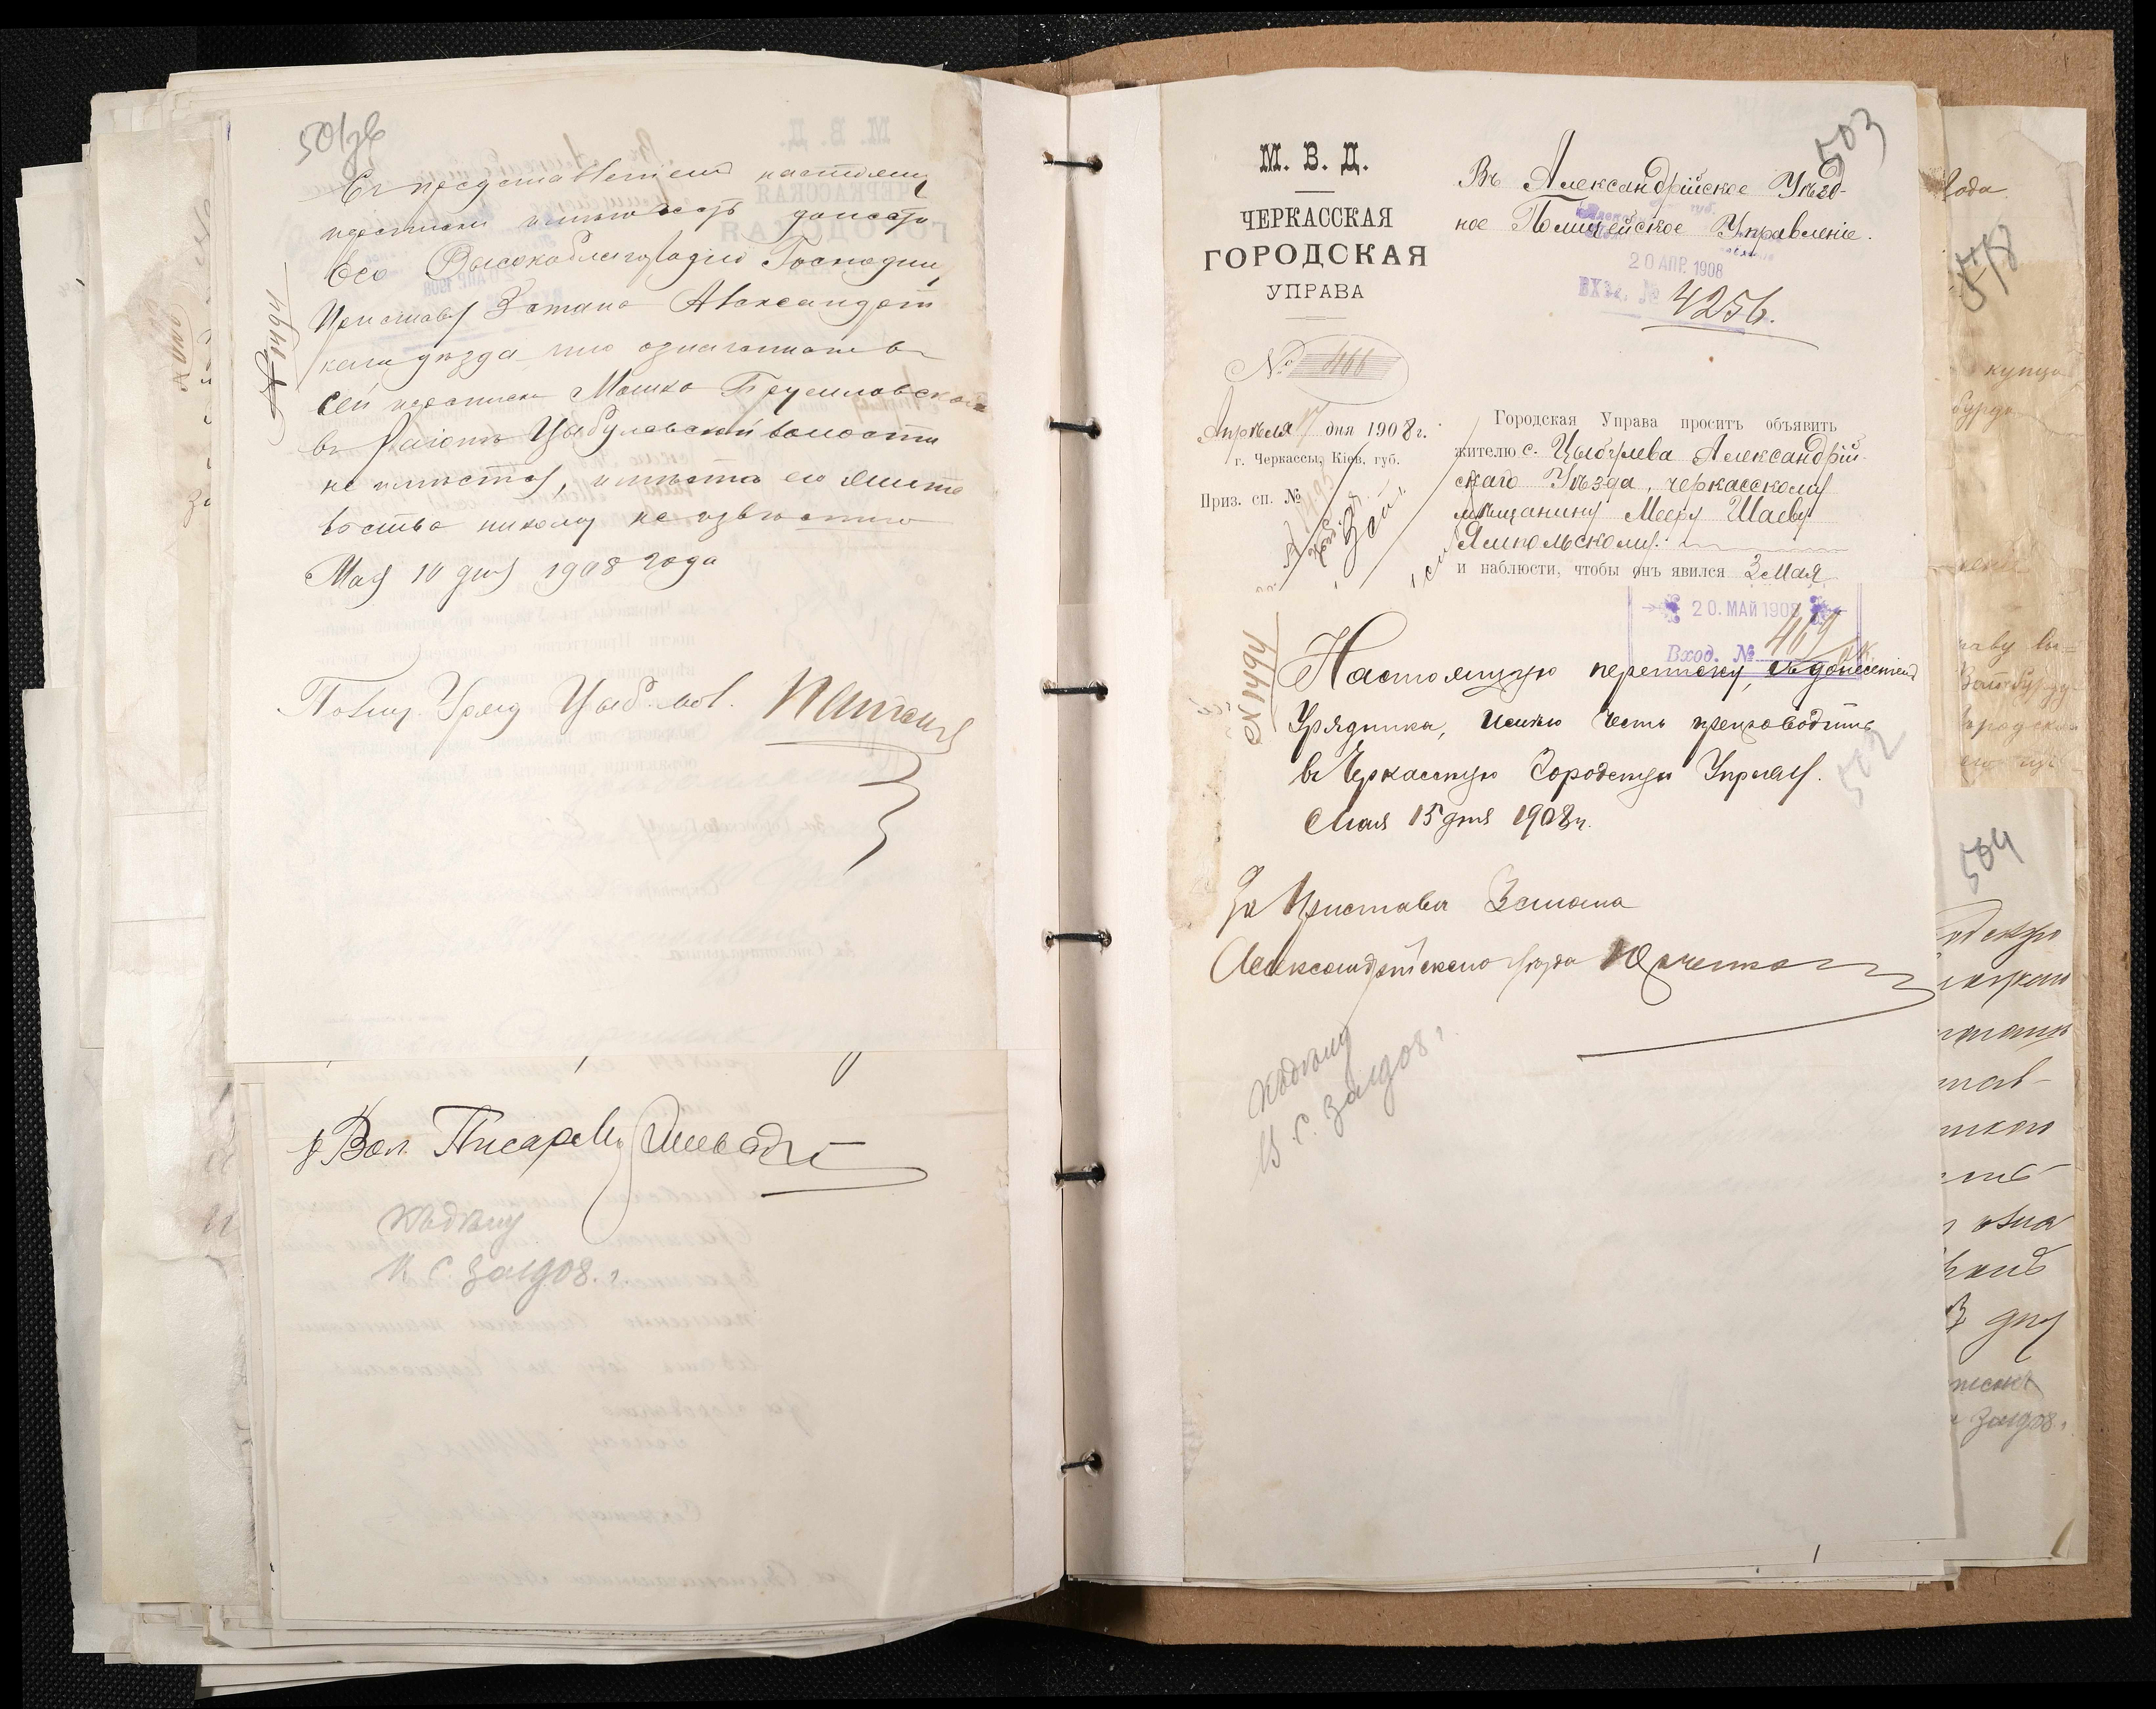 501 об
Съ представленiемъ настоящей
переписки имѣю честь донести
Его Высокоблагородiю Господину
Приставу 3 стана Александрiй
скаго уѣзда что означенный въ
сей переписки Мошко Брусиловскiй
въ раiонѣ Цыбулевской волости
не имѣется, и мѣсто его жите
льства никому не извѣстно
Мая 10 дня 1908 года
№ 1494
Полиц. Уряд. Цыбулев.
Вол. Писарь
К дѣлу
В. С. За 1908. г.
503
М. В. Д.
ЧЕРКАССКАЯ
ГОРОДСКАЯ
УПРАВА
№ 466
Апрѣля 17 дня 1908 г.
г. Черкассы, Кiев. губ.
Приз. сп. №
Въ Александрiйское Уѣзд-
ное Полицейское Управленiе.
20 АПР. 1908
ВХОД. № 4256.
Городская Управа проситъ объявить
жителю с. Цыбулева Александрiй-
скаго Уѣзда, черкасскому
мѣщанину Мееру Шаеву
Ямпольскому
и наблюсти, чтобы онъ явился 3 Мая
20. МАЙ 1908
Вход. № 469
№ 1494
Настоящую переписку, съ донесенiемъ
Урядника, имѣю честь препроводить
въ Черкасскую Городскую Управу.
Мая 15 дня 1908 г.
502
За Пристава 3 стана
Александрiйскаго уѣзда
К дѣлу
В. С. За 1908 г.
года
578
купца
504
дня